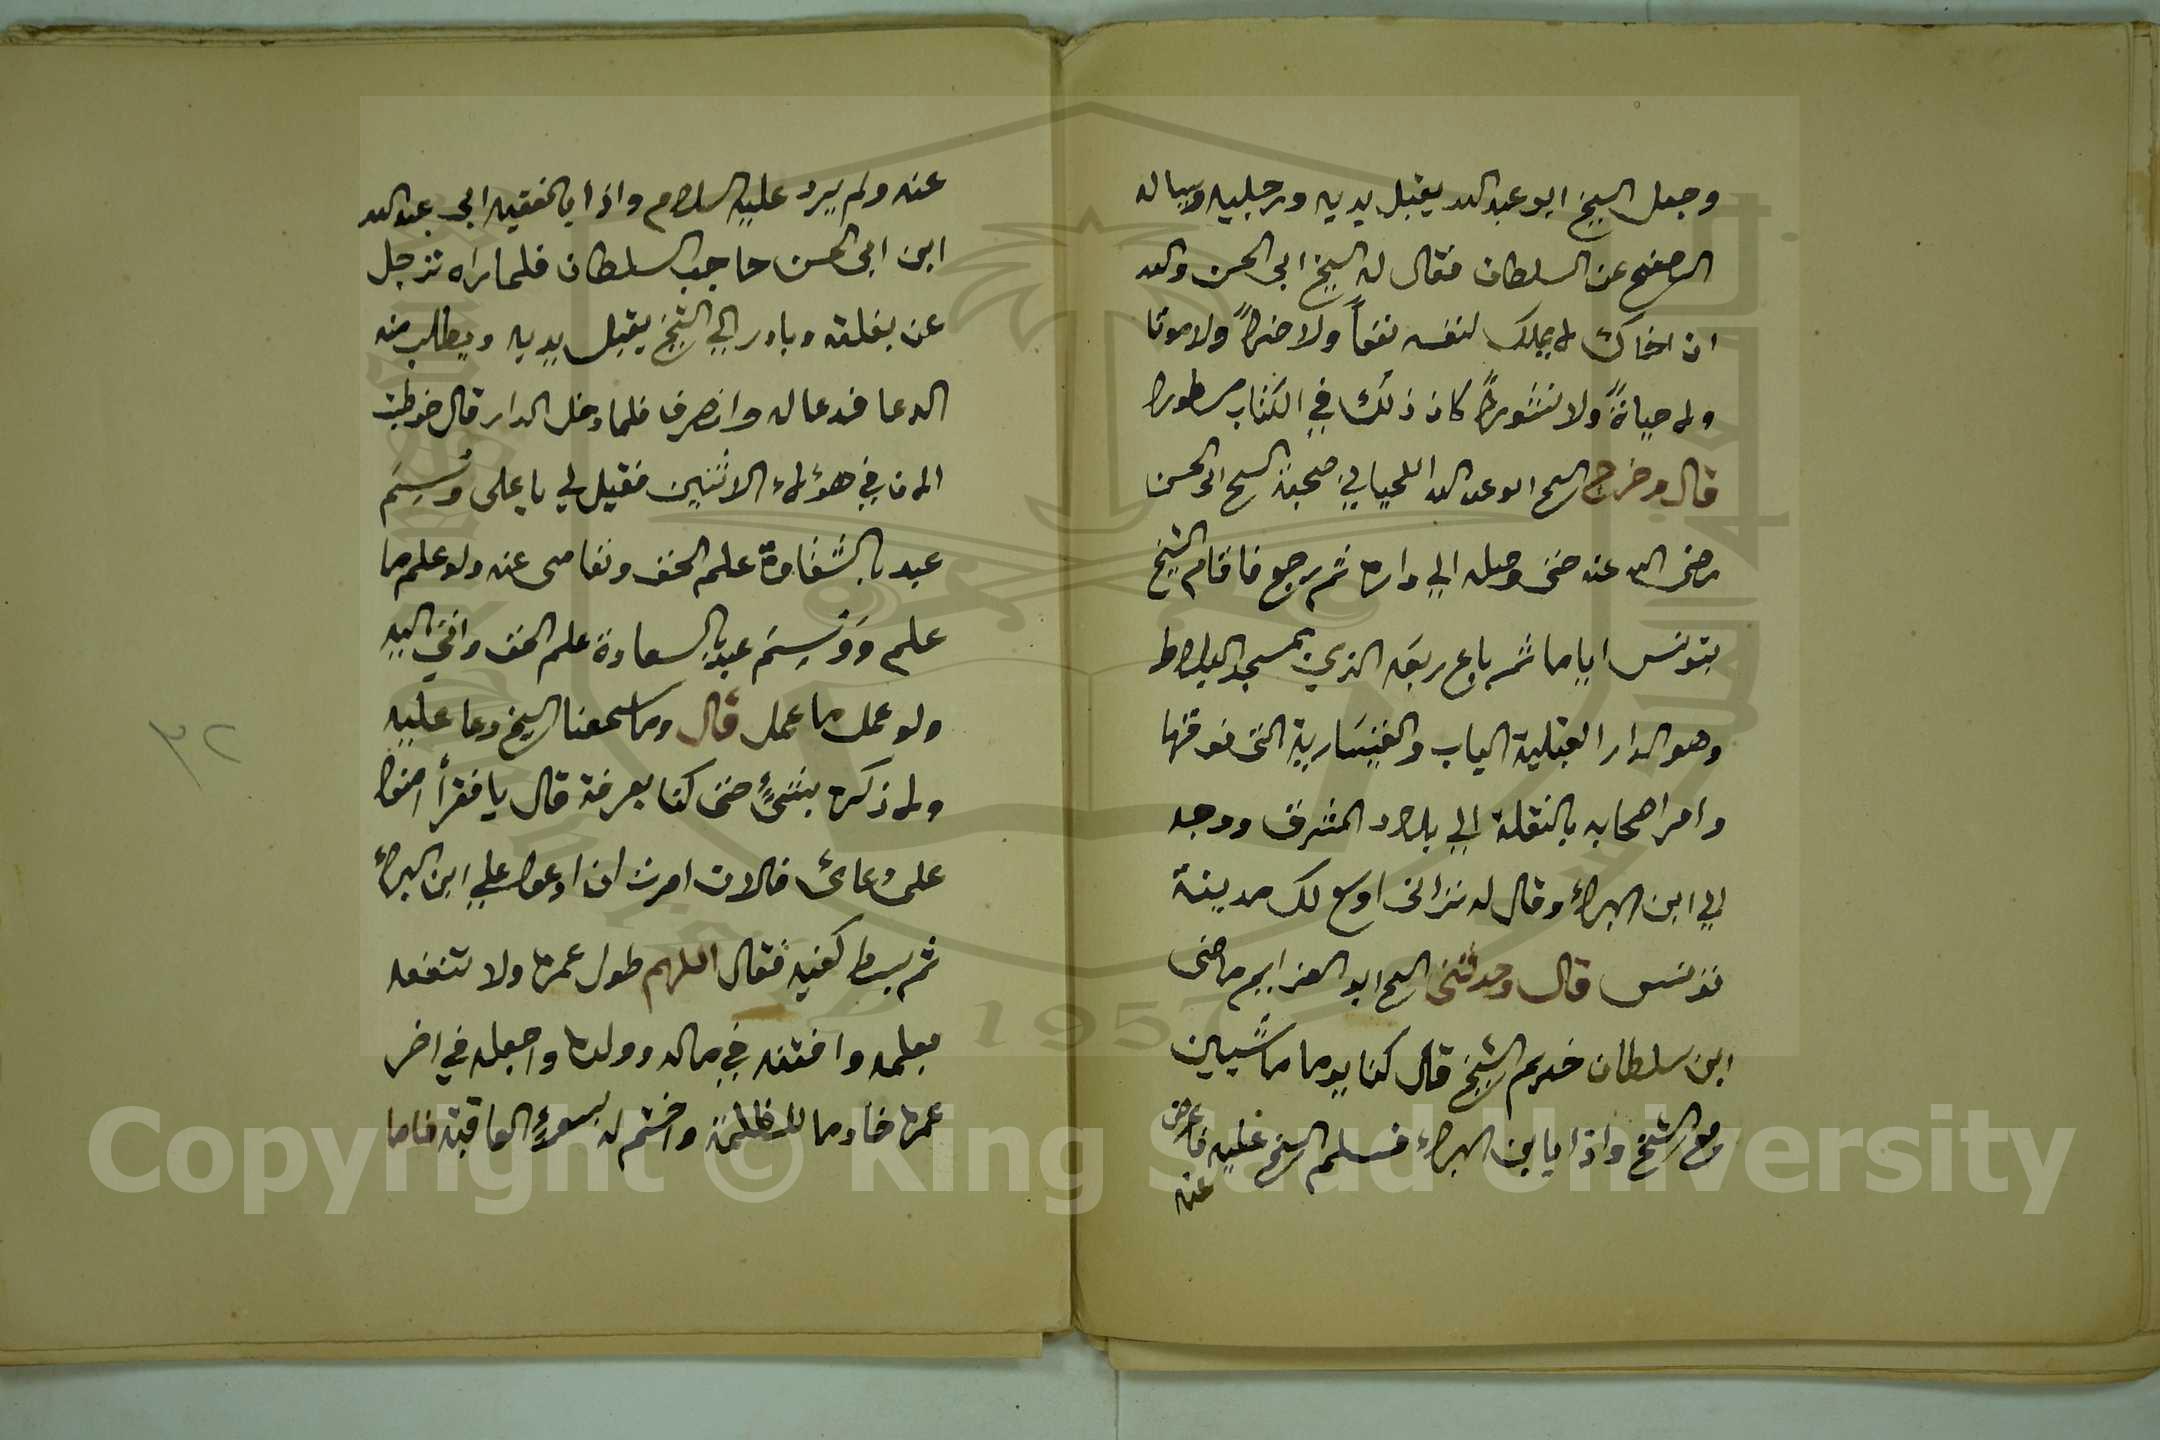 وجعل الشيخ ابو عبد الله يقبل يديه ورجليه ويساله
الصفح عن السلطان فقال له الشيخ ابى الحسن والله
ان اخاك لا يملك لنفسه نفعاً ولا ضراً ولا موتا
ولا حياةً ولا نشوراً كان ذلك في الكتاب مسطورا
قال وخرج الشيخ ابو عبد الله اللحياني صحبة الشيخ ابى الحسن
رضى الله عنه حتى وصله الي داره ثم رجع فاقام الشيخ
بتونس اياما ثم باع ربعه الذي بمسجد البلاط
وهو الدار القبلية الباب والقيسارية التى فوقها
وامر اصحابه بالنقلة الي بلاد المشرق ووجه
الي ابن البراء وقال له ترانى اوسع لك مدينة
تونس قال وحدثنى الشيخ ابو العزايم ماضى
ابن سلطان خديم الشيخ قال كنا يوما ماشيين
مع الشيخ واذا بابن البراء فسلم الشيخ عليه فاعرض
عنه
عنه ولم يرد عليه السلام واذا بالفقيه ابى عبد الله
ابن ابى الحسن حاجب السلطان فلما راه ترجل
عن بغلته وبادر الي الشيخ يقبل يديه ويطلب منه
الدعا فدعا له وانصرف فلما دخل الدار قال خوطبت
الان في هؤلاء الاثنين فقيل لي يا على وُسِمَ
عبد بالشقاوة علم الحق وتعامى عنه ولو علم ما
علم وَوُسِمَ عبد بالسعادة علم الحق واتى اليه
ولو عمل ما عمل قال وما سمعنا الشيخ دعا عليه
ولا ذكره بشىء حتى كنا بعرفة قال يا فقراء امنوا
على دعائى فالان امرت ان ادعوا علي ابن البراء
ثم بسط كفيه فقال اللهم طول عمره ولا تنفعه
بعلمه وافتنه في ماله وولده واجعله في اخر
عمره خادما للظلمة واختم له بسوء العاقبة فاما
٣٢
Copyright © King Saud University
1957